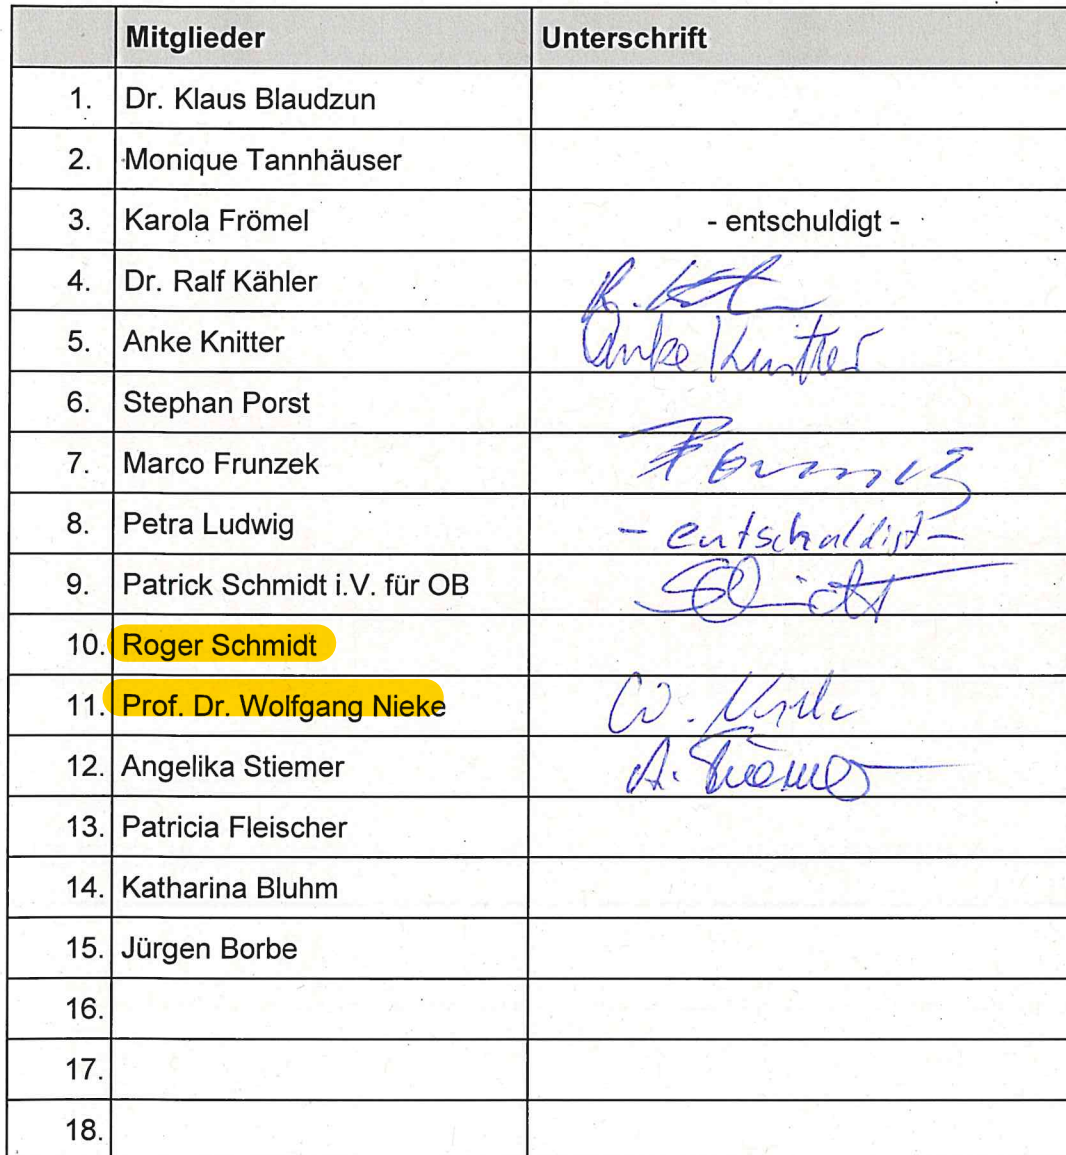 Mitglieder Unterschrift
1. Dr. Klaus Blaudzun
2. Monique Tannhäuser
3. Karola Frömel - entschuldigt -
4. Dr. Ralf Kähler R. Kähler
5. Anke Knitter Anke Knitter
6. Stephan Porst
7. Marco Frunzek
8. Petra Ludwig - entschuldigt -
9. Patrick Schmidt i.V. für OB Schmidt
10. Roger Schmidt
11. Prof. Dr. Wolfgang Nieke W. Nieke
12. Angelika Stiemer A. Stiemer
13. Patricia Fleischer
14. Katharina Bluhm
15. Jürgen Borbe
16.
17.
18.